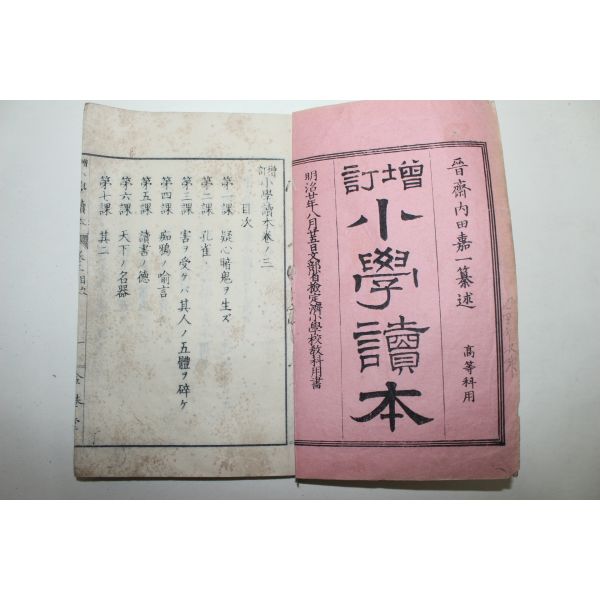 晉齋內田嘉一纂述
高等科用
增訂
小學讀本
明治廿年八月廿五日文部省檢定濟小學校敎科用書
增訂小學讀本卷ノ三
目次
第一課 疑心暗鬼ヲ生ズ
第二課 孔雀
第三課 害ヲ受ケバ其人ノ五體ヲ碎ケ
第四課 痴鴉ノ喩言
第五課 讀書ノ德
第六課 天下ノ名器
第七課 其二